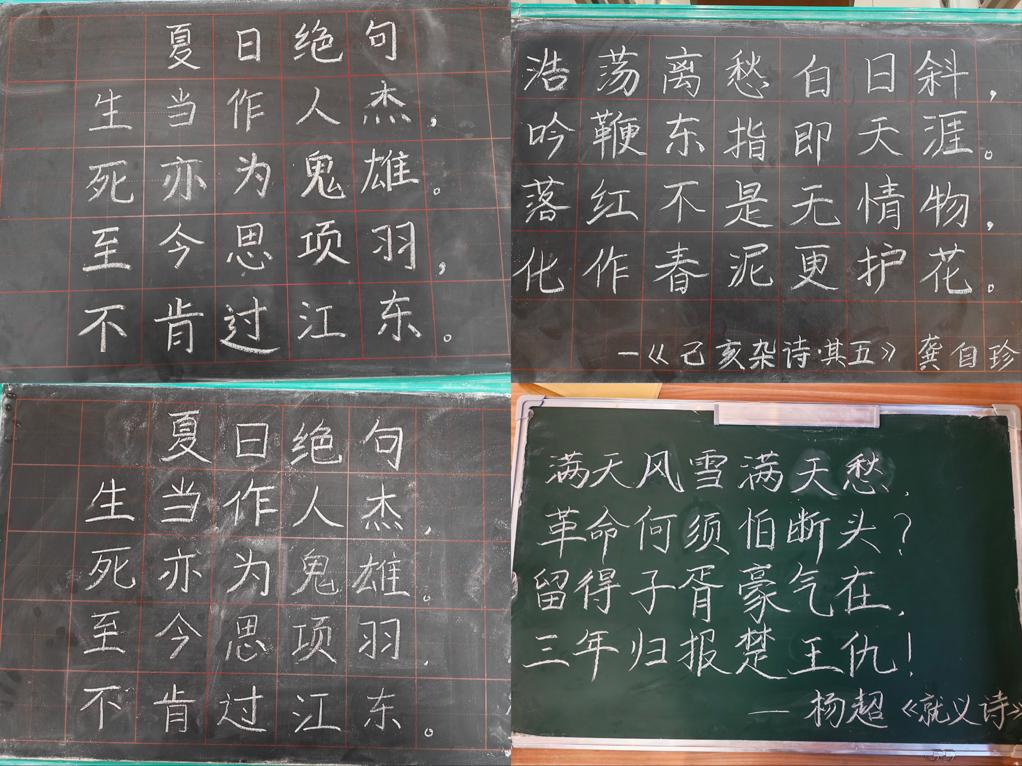 夏日绝句
生当作人杰，
死亦为鬼雄。
至今思项羽，
不肯过江东。
浩荡离愁白日斜，
吟鞭东指即天涯。
落红不是无情物，
化作春泥更护花。
—《己亥杂诗·其五》 龚自珍
夏日绝句
生当作人杰，
死亦为鬼雄。
至今思项羽，
不肯过江东。
满天风雪满天愁，
革命何须怕断头？
留得子胥豪气在，
三年归报楚王仇！
— 杨超《就义诗》